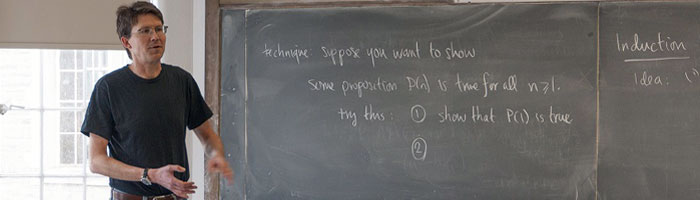 technique: suppose you want to show
some proposition P(n) is true for all n≥1.
try this: ① show that P(1) is true
②
Induction
Idea: (1)